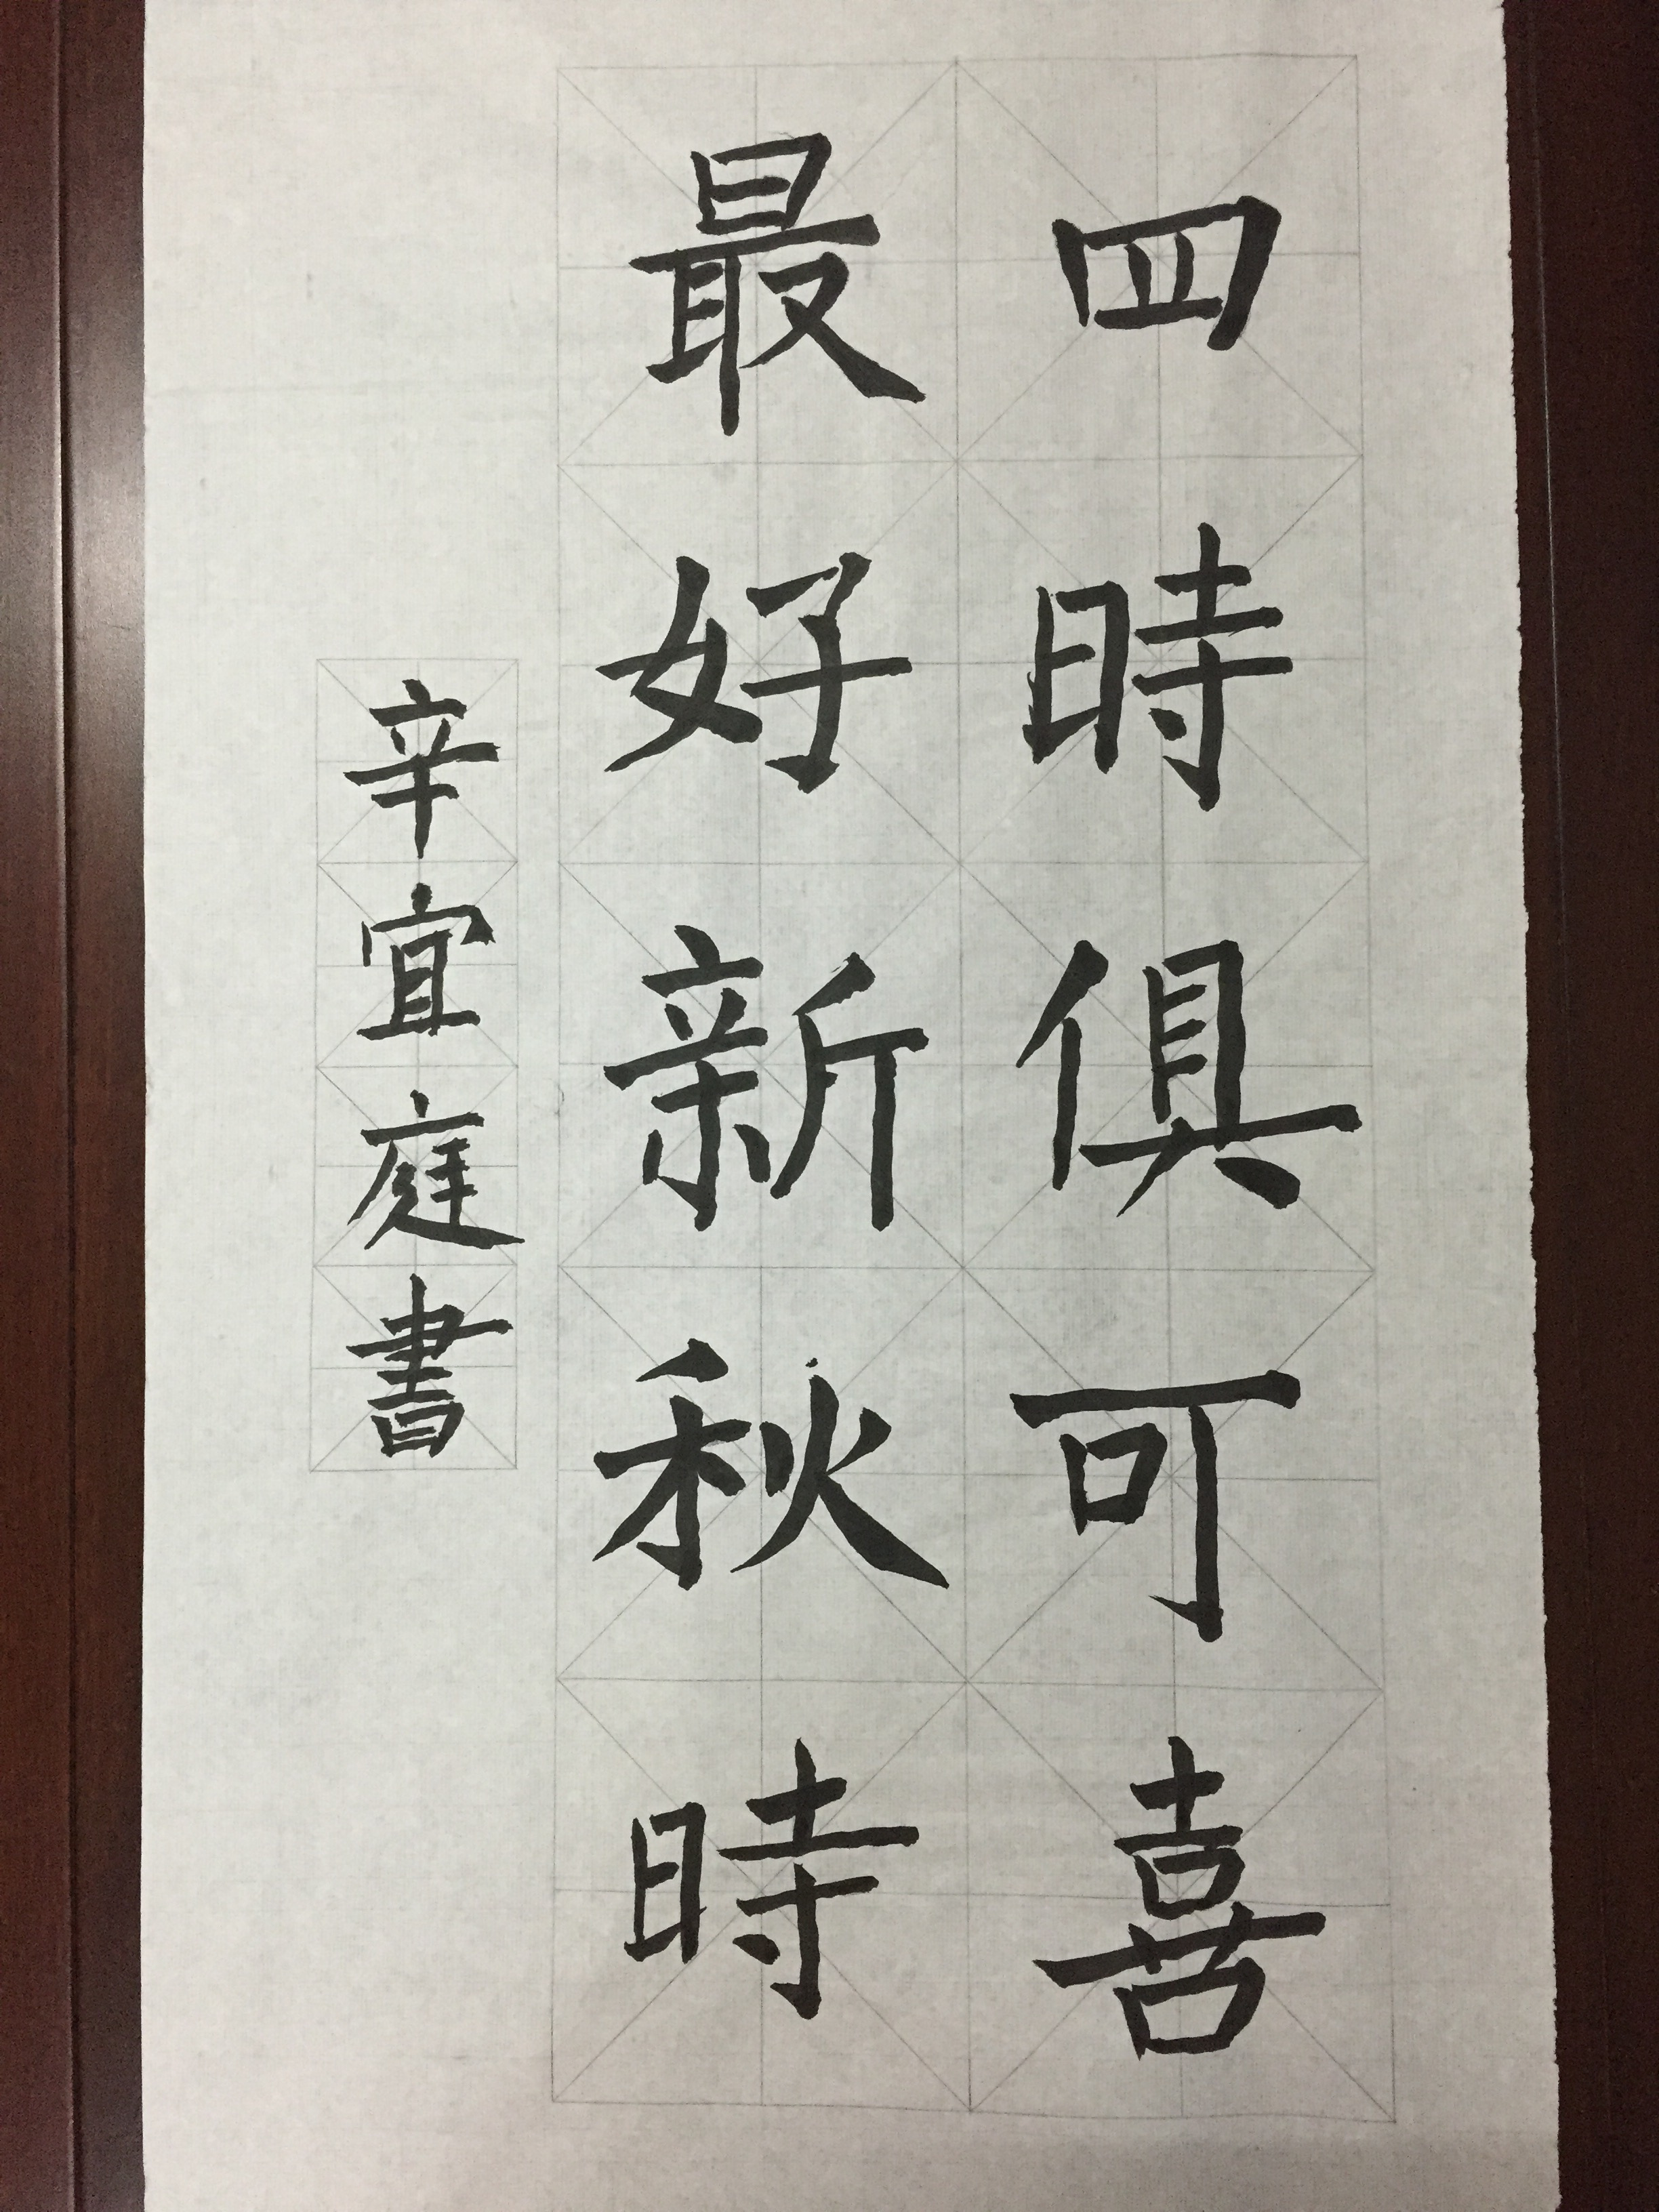 四時俱可喜
最好新秋時
辛宜庭書